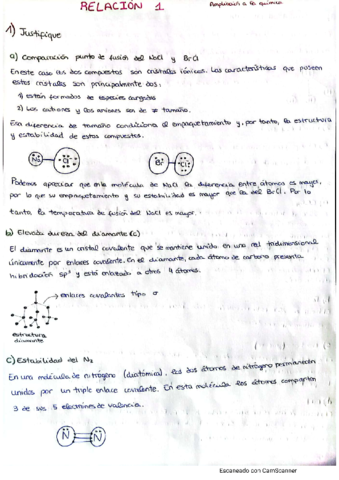 RELACIÓN 1
Ampliación a la química
1) Justifique
a) Comparación punto de fusión del NaCl y BrCl
En este caso los dos compuestos son cristales iónicos. Las características que poseen
estos cristales son principalmente dos:
1) están formados de especies cargadas
2) Los cationes y los aniones son de ≠ tamaño.
Esa diferencia de tamaño condiciona el empaquetamiento y, por tanto, la estructura
y estabilidad de estos compuestos.
Na Br Br Cl
Podemos apreciar que en la molécula de NaCl la diferencia entre átomos es mayor,
por lo que su empaquetamiento y su estabilidad es mayor que la del BrCl. Por lo
tanto la temperatura de fusión del NaCl es mayor.
b) Elevada dureza del diamante (C)
El diamante es un cristal covalente que se mantiene unido en una red tridimensional
únicamente por enlaces covalente. En el diamante, cada átomo de carbono presenta
hibridación sp³ y está enlazado a otros 4 átomos.
enlaces covalentes tipo σ
estructura
diamante
C) Estabilidad del N₂
En una molécula de nitrógeno (diatómica), los dos átomos de nitrógeno permanecen
unidos por un triple enlace covalente. En esta molécula los átomos comparten
3 de los 5 electrones de valencia.
N N
Escaneado con CamScanner